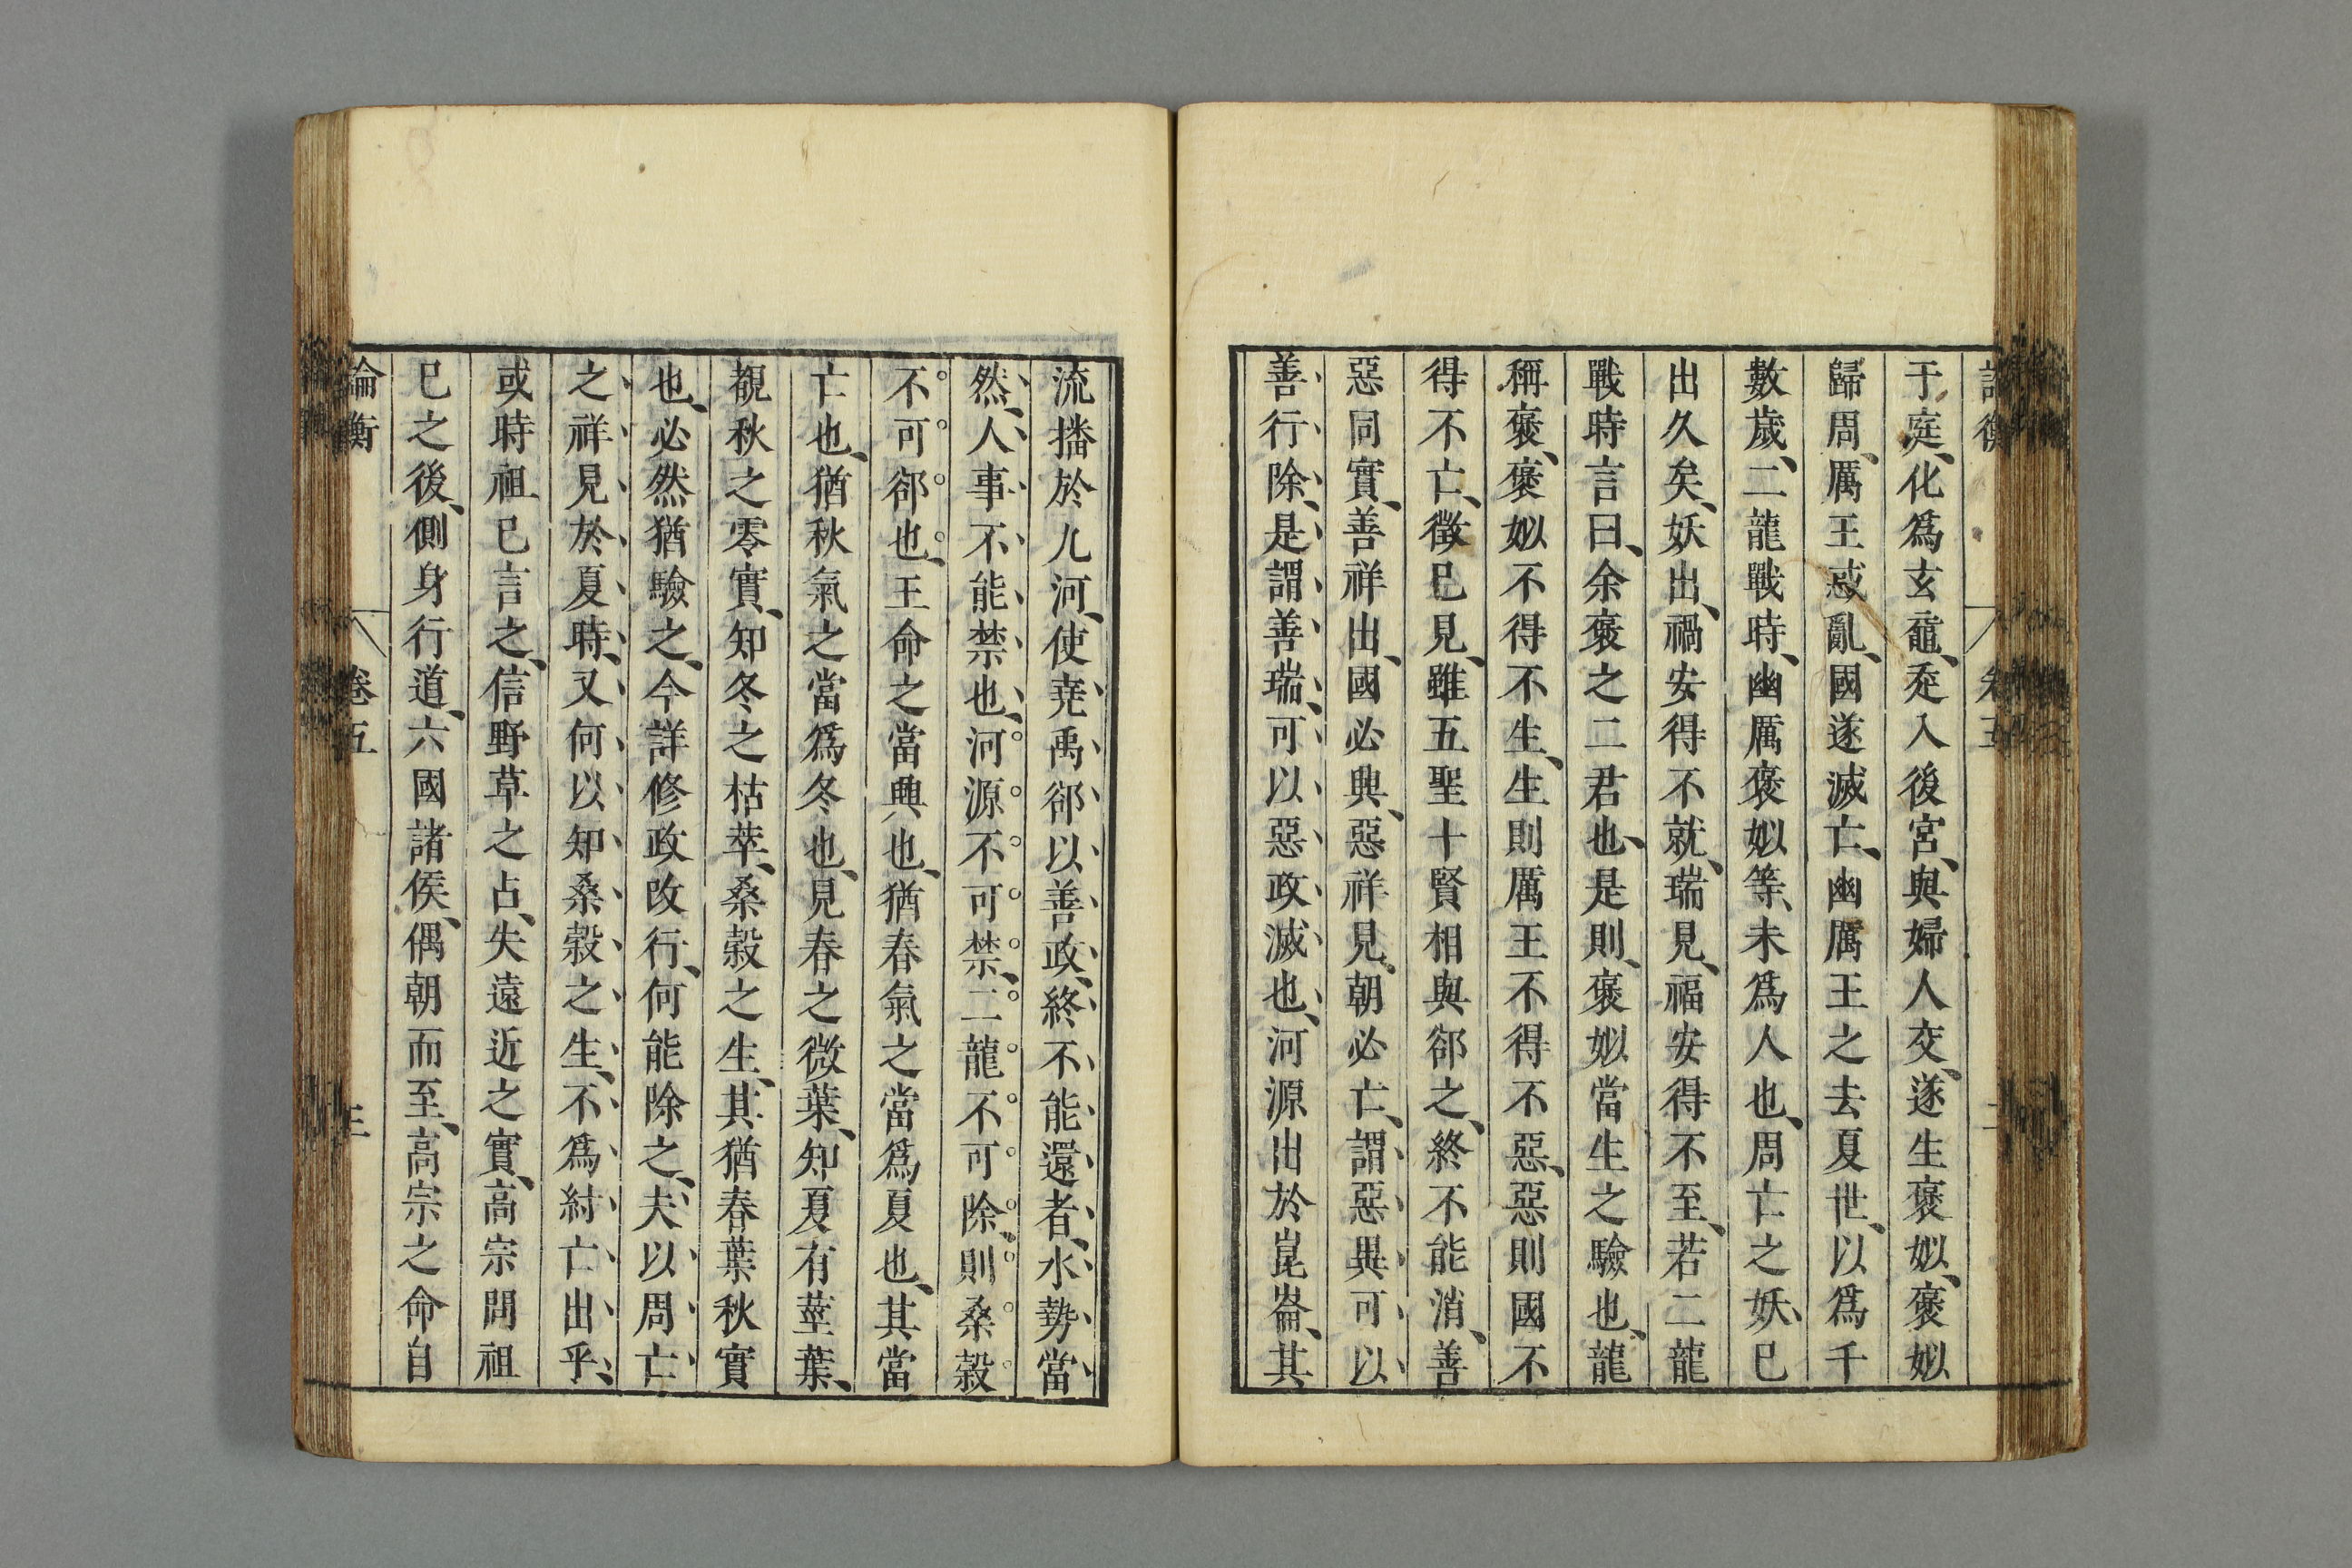 于庭、化爲玄黿、走入後宮、與婦人交、遂生褒姒、褒姒
歸周、厲王惑亂、國遂滅亡、幽厲王之去夏世、以爲千
數歲、二龍戰時、幽厲褒姒等、未爲人也、周亡之妖、已
出久矣、妖出、禍安得不就、瑞見、福安得不至、若二龍
戰時言曰、余褒之二君也、是則、褒姒當生之驗也、龍
稱褒、褒姒不得不生、生則厲王不得不惡、惡則國不
得不亡、徵已見、雖五聖十賢相與郤之、終不能消、善
惡同實、善祥出、國必興、惡祥見、朝必亡、謂惡異可以
善行除、是謂善瑞、可以惡政滅也、河源出於崑崙、其
論衡 卷五
流播於九河、使堯禹郤以善政、終不能還者、水勢當
然、人事不能禁也、河源不可禁、二龍不可除、則桑榖
不可郤也、王命之當興也、猶春氣之當爲夏也、其當
亡也、猶秋氣之當爲冬也、見春之微葉、知夏有莖葉、
覩秋之零實、知冬之枯萃、桑榖之生、其猶春葉秋實
也、必然猶驗之、今詳修政改行、何能除之、夫以周亡
之祥見於夏時、又何以知桑榖之生、不爲紂亡出乎、
或時祖已言之、信野草之占、失遠近之實、高宗問祖
已之後、側身行道、六國諸侯、偶朝而至、高宗之命自
論衡 卷五 三